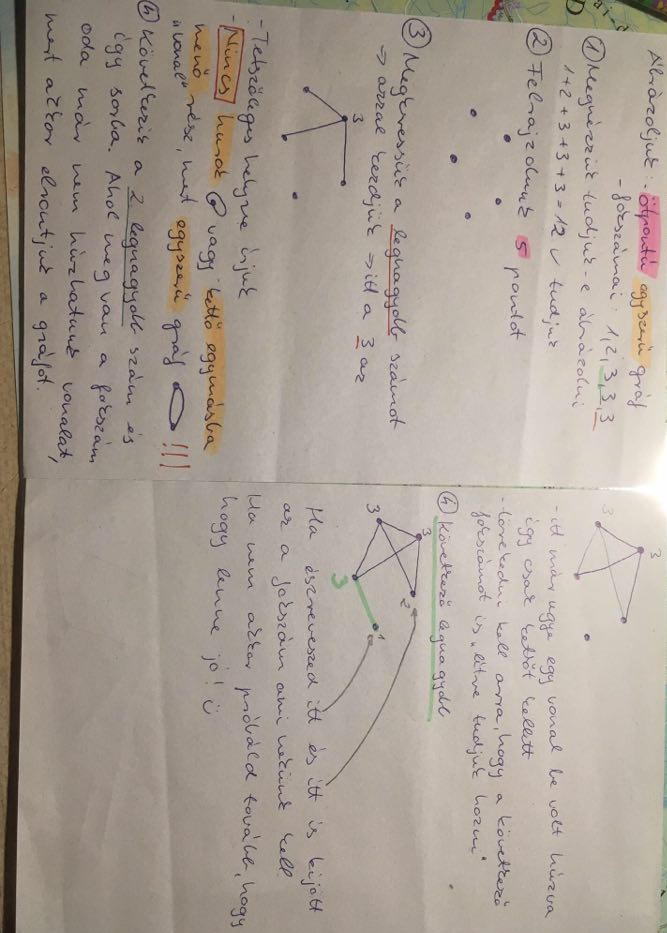 Ábrázoljuk: ötpontú egyszerű gráf
- fokszámai: 1, 2, 3, 3, 3
① Megnézzük tudjuk-e ábrázolni
1+2+3+3+3=12 ✓ tudjuk
② Felrajzolunk 5 pontot
③ Megkeressük a legnagyobb számot
→ azzal kezdjük → itt a 3 az
3
- Tetszőleges helyre írjuk
- Nincs hurok vagy kettő egymásba
menő rész, mert egyszerű gráf !!!
"vonal"
④ Következik a 2. legnagyobb szám és
így sorba. Ahol megvan a fokszám
oda már nem húzhatunk vonalat,
mert akkor elrontjuk a gráfot.
3
3
- itt már ugye egy vonal be volt húzva
így csak kettőt kellett
- törekedni kell arra, hogy a következő
fokszámot is "létre tudjuk hozni"
④ Következő legnagyobb
3
3
3
2
1
Ha észreveszed itt és itt is kijött
az a fokszám ami nekünk kell.
Ha nem akkor próbáld tovább, hogy
hogy lenne jó! :)